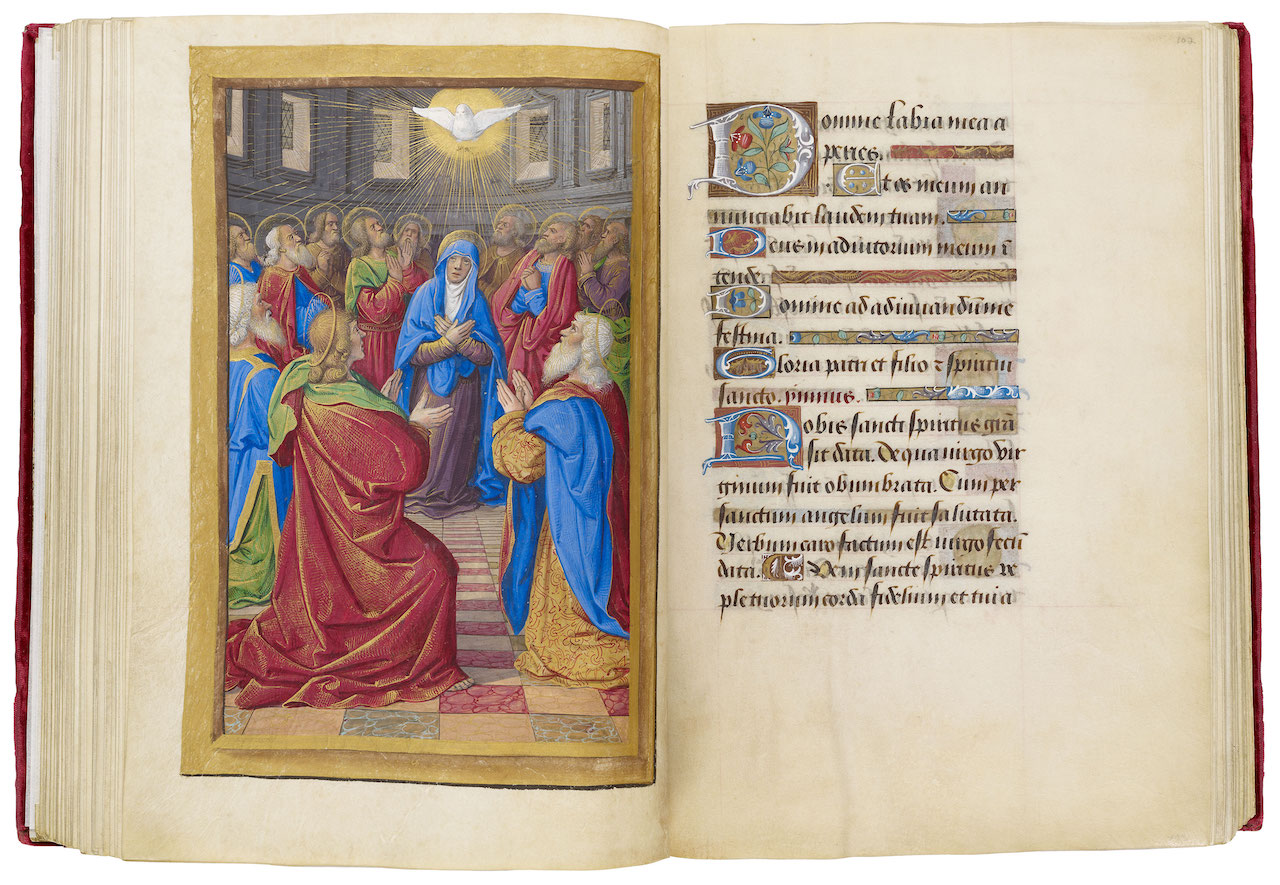 Domine labia mea a
peries.
Et os meum an
nunciabit laudem tuam.
Deus in adiutorium meum ī
tende.
Domine ad adiuuandū me
festina.
Gloria patri et filio ⁊ spiritui
sancto. ymnus.
Nobis sancte spiritus grā
sit data. De qua uirgo vir
ginum fuit obumbrata. Cum per
sanctum angelum fuit salutata.
Verbum caro factum est uirgo fecū
data. Veni sancte spiritus re
ple tuorum corda fidelium et tui a